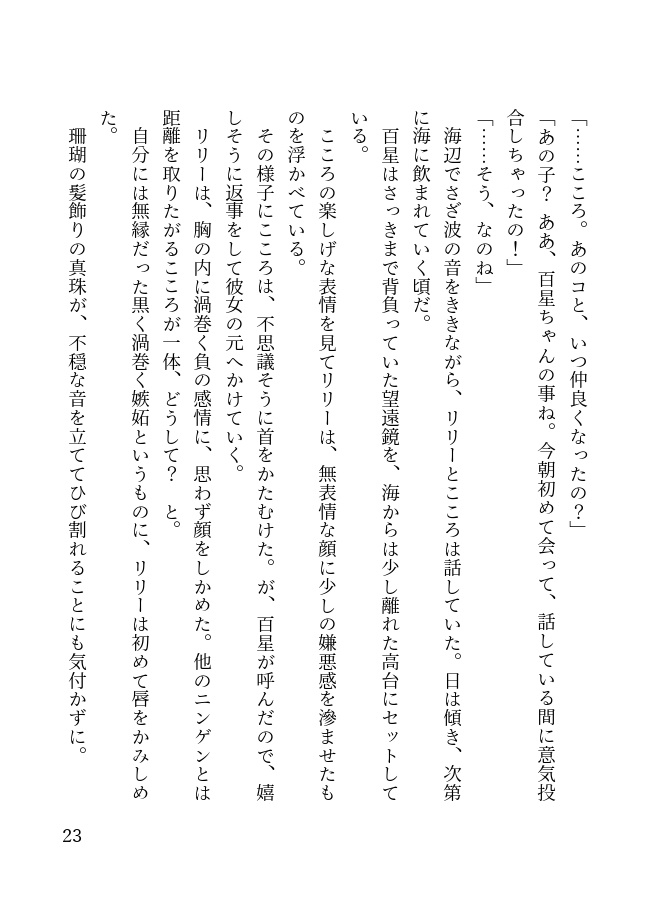 「……こころ。あのコと、いつ仲良くなったの？」
「あの子？ ああ、百星ちゃんの事ね。今朝初めて会って、話している間に意気投
合しちゃったの！」
「……そう、なのね」
　海辺でさざ波の音をききながら、リリーとこころは話していた。日は傾き、次第
に海に飲まれていく頃だ。
　百星はさっきまで背負っていた望遠鏡を、海からは少し離れた高台にセットして
いる。
　こころの楽しげな表情を見てリリーは、無表情な顔に少しの嫌悪感を滲ませたも
のを浮かべている。
　その様子にこころは、不思議そうに首をかたむけた。が、百星が呼んだので、嬉
しそうに返事をして彼女の元へかけていく。
　リリーは、胸の内に渦巻く負の感情に、思わず顔をしかめた。他のニンゲンとは
距離を取りたがるこころが一体、どうして？　と。
　自分には無縁だった黒く渦巻く嫉妬というものに、リリーは初めて唇をかみしめ
た。
　珊瑚の髪飾りの真珠が、不穏な音を立ててひび割れることにも気付かずに。
23